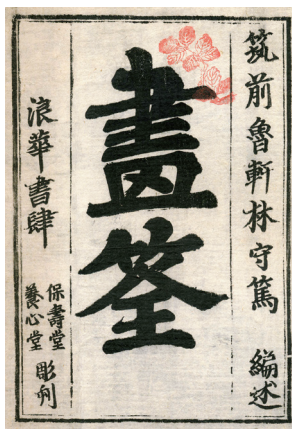 筑前魯軒林守篤 編述
畫筌
浪華書肆
保壽堂
養心堂
彫刻